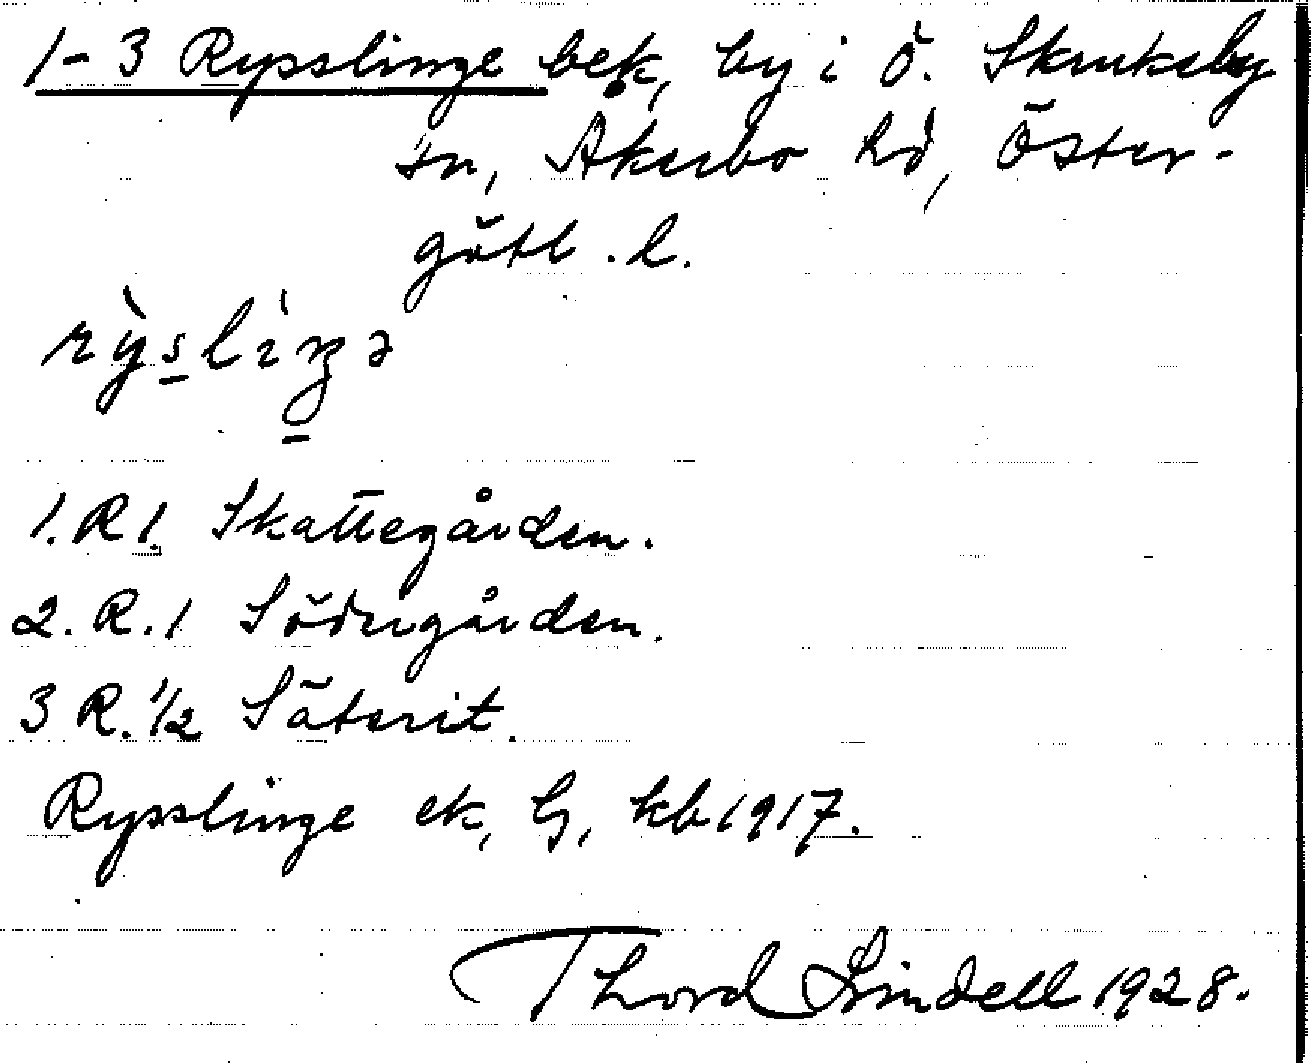 1-3 Rysslinge bek, by i Ö. Skrukeby
sn, Åkerbo hd, Öster-
götl. l.
1. R 1. Skattegården.
2. R. 1 Södergården.
3 R. 1/2 Säterit.
Rysslinge ek, G, kb 1917.
Thord Lindell 1928.